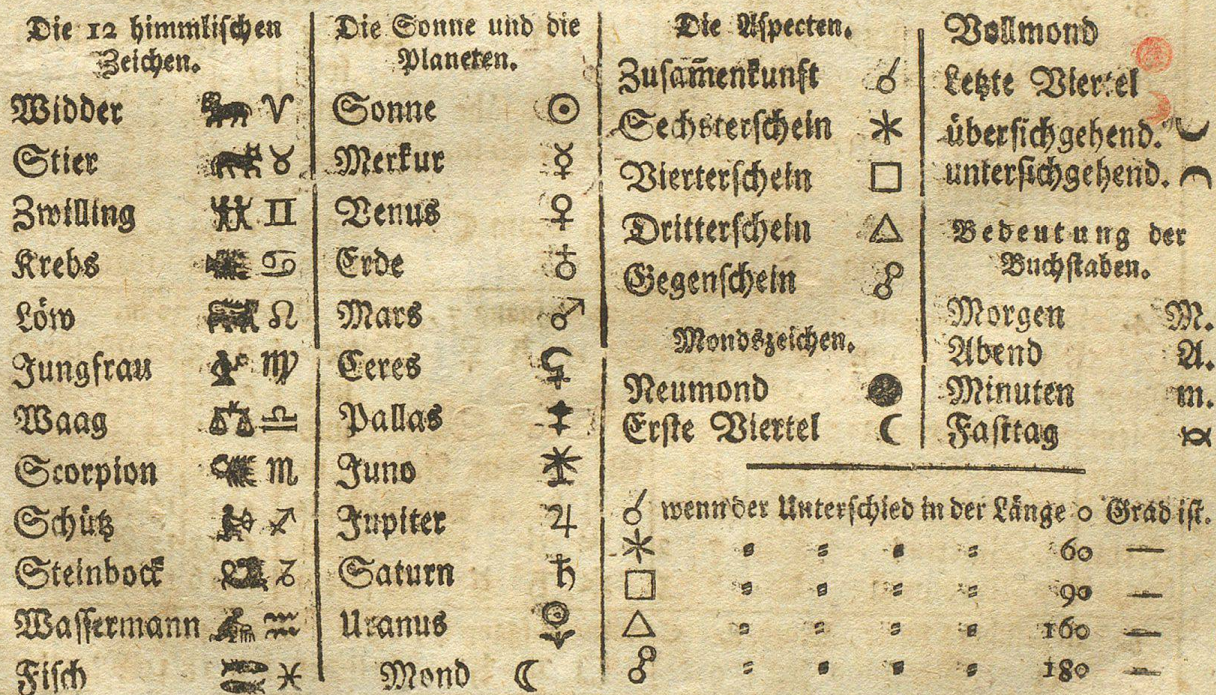 Die 12 himmlischen
Zeichen.
Widder ♈
Stier ♉
Zwilling ♊
Krebs ♋
Löw ♌
Jungfrau ♍
Waag ♎
Scorpion ♏
Schütz ♐
Steinbock ♑
Wassermann ♒
Fisch ♓
Die Sonne und die
Planeten.
Sonne ☉
Merkur ☿
Venus ♀
Erde ♁
Mars ♂
Ceres ⚳
Pallas ⚴
Juno ⚵
Jupiter ♃
Saturn ♄
Uranus ♅
Mond ☾
Die Aspecten.
Zusam̄enkunft ☌
Sechsterschein ⚹
Vierterschein □
Dritterschein △
Gegenschein ☍
Mondszeichen.
Neumond ●
Erste Viertel ☾
Vollmond
Letzte Viertel
übersichgehend.
untersichgehend.
Bedeutung der
Buchstaben.
Morgen M.
Abend A.
Minuten m.
Fasttag
☌ wenn der Unterschied in der Länge 0 Grad ist.
⚹ 〃 〃 〃 〃 60 —
□ 〃 〃 〃 〃 90 —
△ 〃 〃 〃 〃 160 —
☍ 〃 〃 〃 〃 180 —